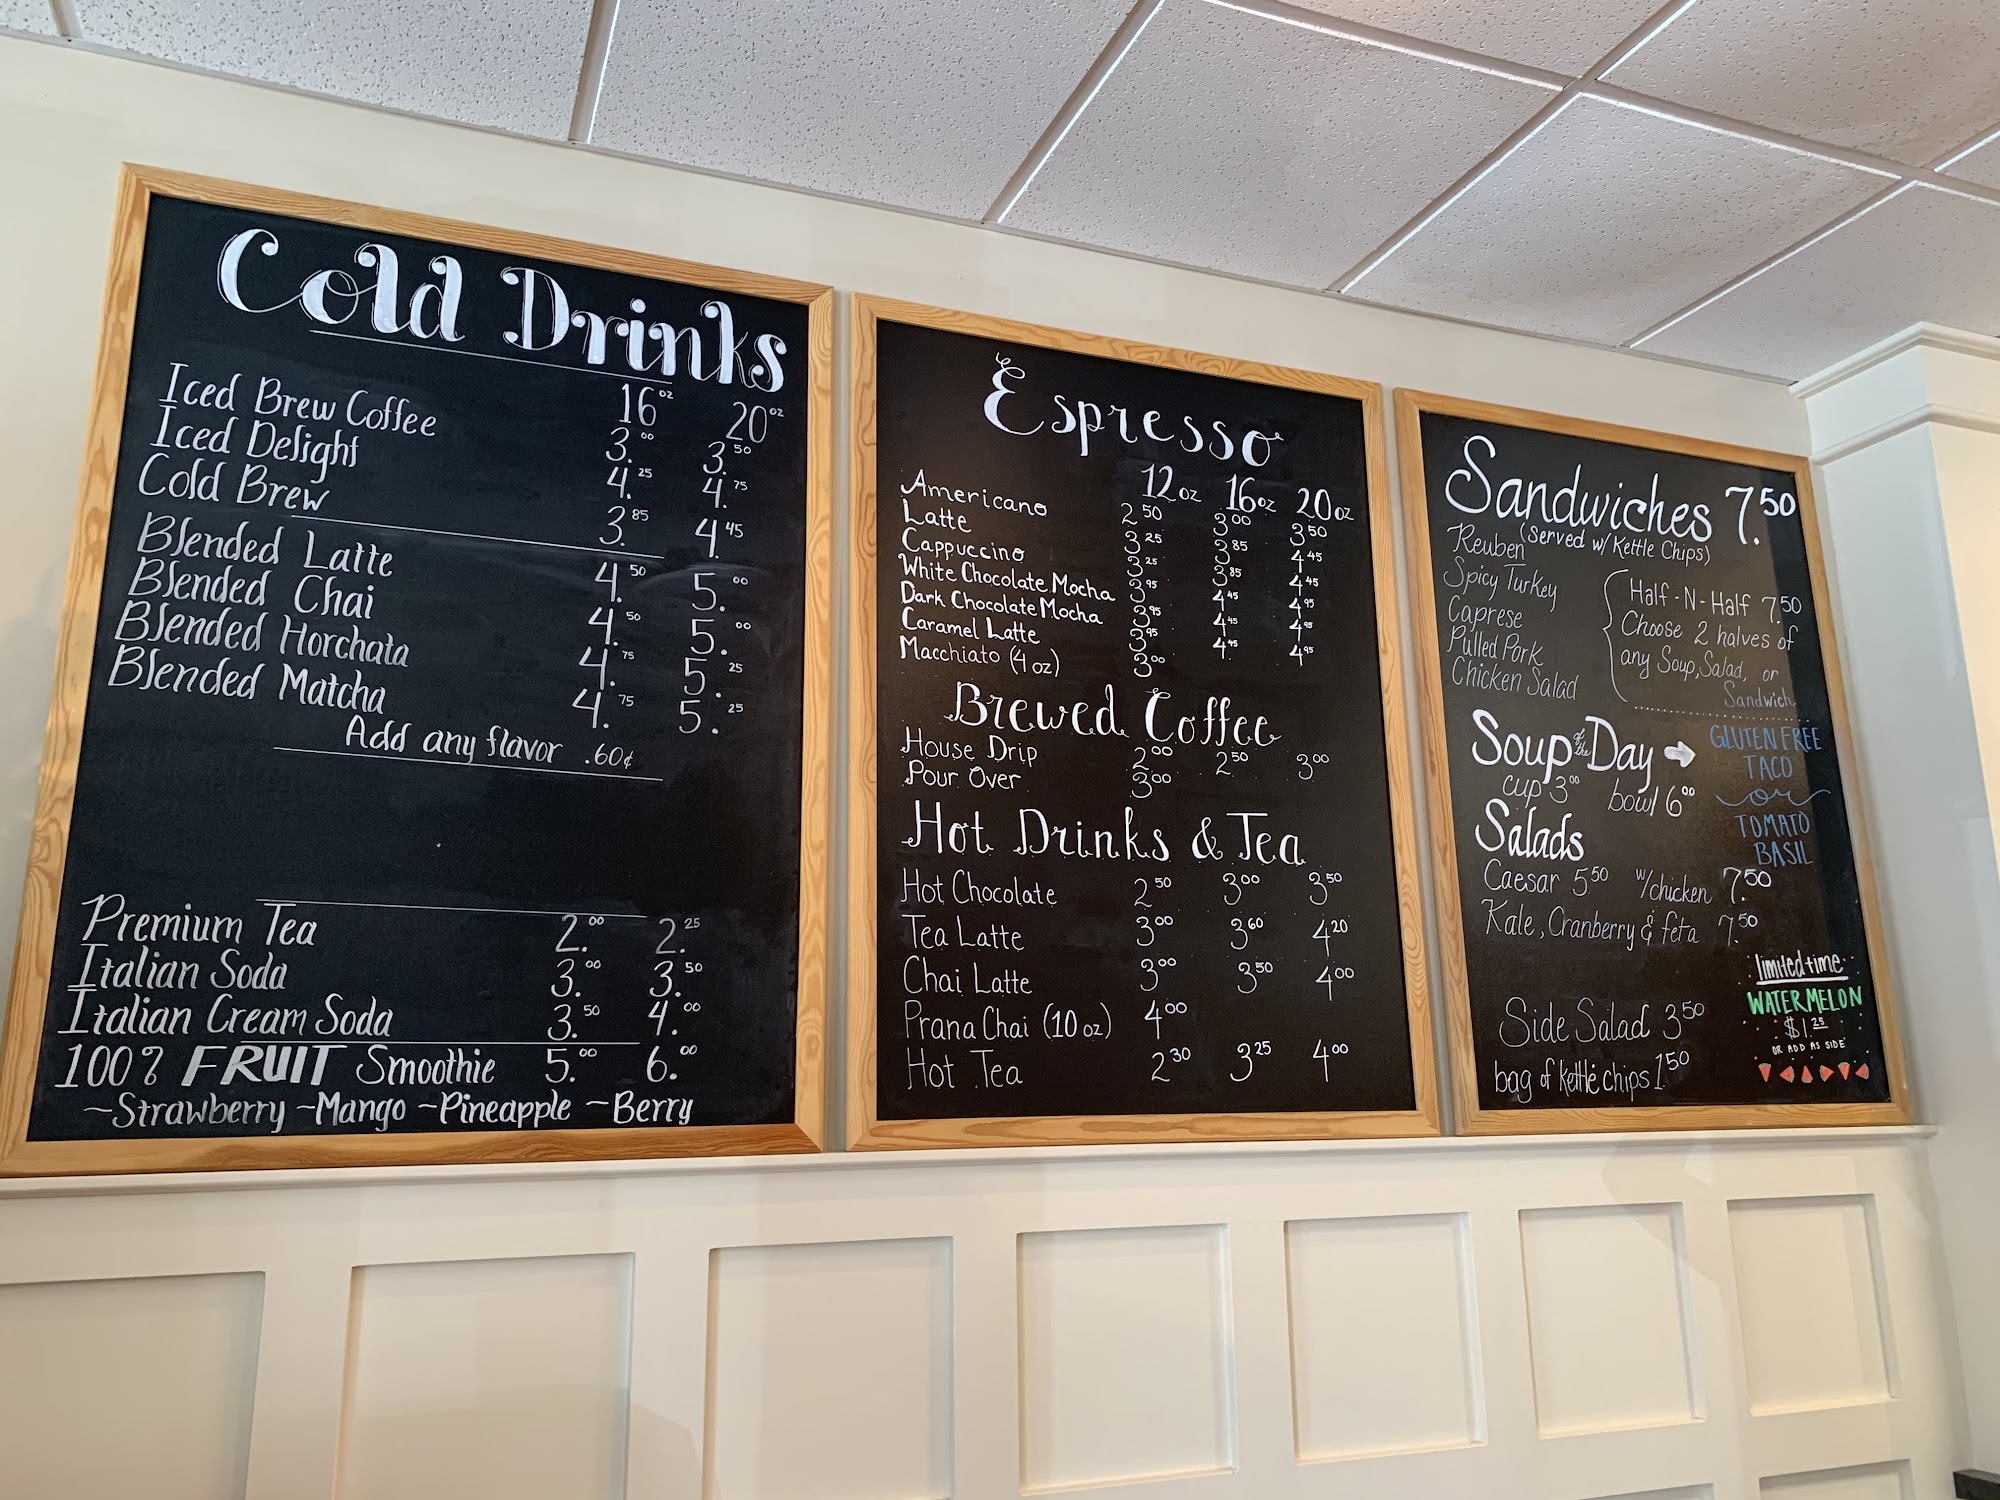 Cold Drinks
16oz 20oz
Iced Brew Coffee 3.00 3.50
Iced Delight 4.25 4.75
Cold Brew 3.85 4.45
Blended Latte 4.50 5.00
Blended Chai 4.50 5.00
Blended Horchata 4.75 5.25
Blended Matcha 4.75 5.25
Add any flavor .60¢
Premium Tea 2.00 2.25
Italian Soda 3.00 3.50
Italian Cream Soda 3.50 4.00
100% FRUIT Smoothie 5.00 6.00
~Strawberry ~Mango ~Pineapple ~Berry
Espresso
12oz 16oz 20oz
Americano 2.50 3.00 3.50
Latte 3.25 3.85 4.45
Cappuccino 3.25 3.85 4.45
White Chocolate Mocha 3.95 4.45 4.95
Dark Chocolate Mocha 3.95 4.45 4.95
Caramel Latte 3.95 4.45 4.95
Macchiato (4 oz) 3.00
Brewed Coffee
House Drip 2.00 2.50 3.00
Pour Over 3.00
Hot Drinks & Tea
Hot Chocolate 2.50 3.00 3.50
Tea Latte 3.00 3.60 4.20
Chai Latte 3.00 3.50 4.00
Prana Chai (10 oz) 4.00
Hot Tea 2.30 3.25 4.00
Sandwiches 7.50
(served w/ Kettle Chips)
Reuben
Spicy Turkey
Caprese
Pulled Pork
Chicken Salad
Half-N-Half 7.50
Choose 2 halves of
any Soup, Salad, or
Sandwich
Soup of the Day
cup 3.00 bowl 6.00
GLUTEN FREE
TACO
or
TOMATO
BASIL
Salads
Caesar 5.50 w/chicken 7.50
Kale, Cranberry & feta 7.50
Side Salad 3.50
bag of kettle chips 1.50
limited time
WATERMELON
$1.25
OR ADD AS SIDE